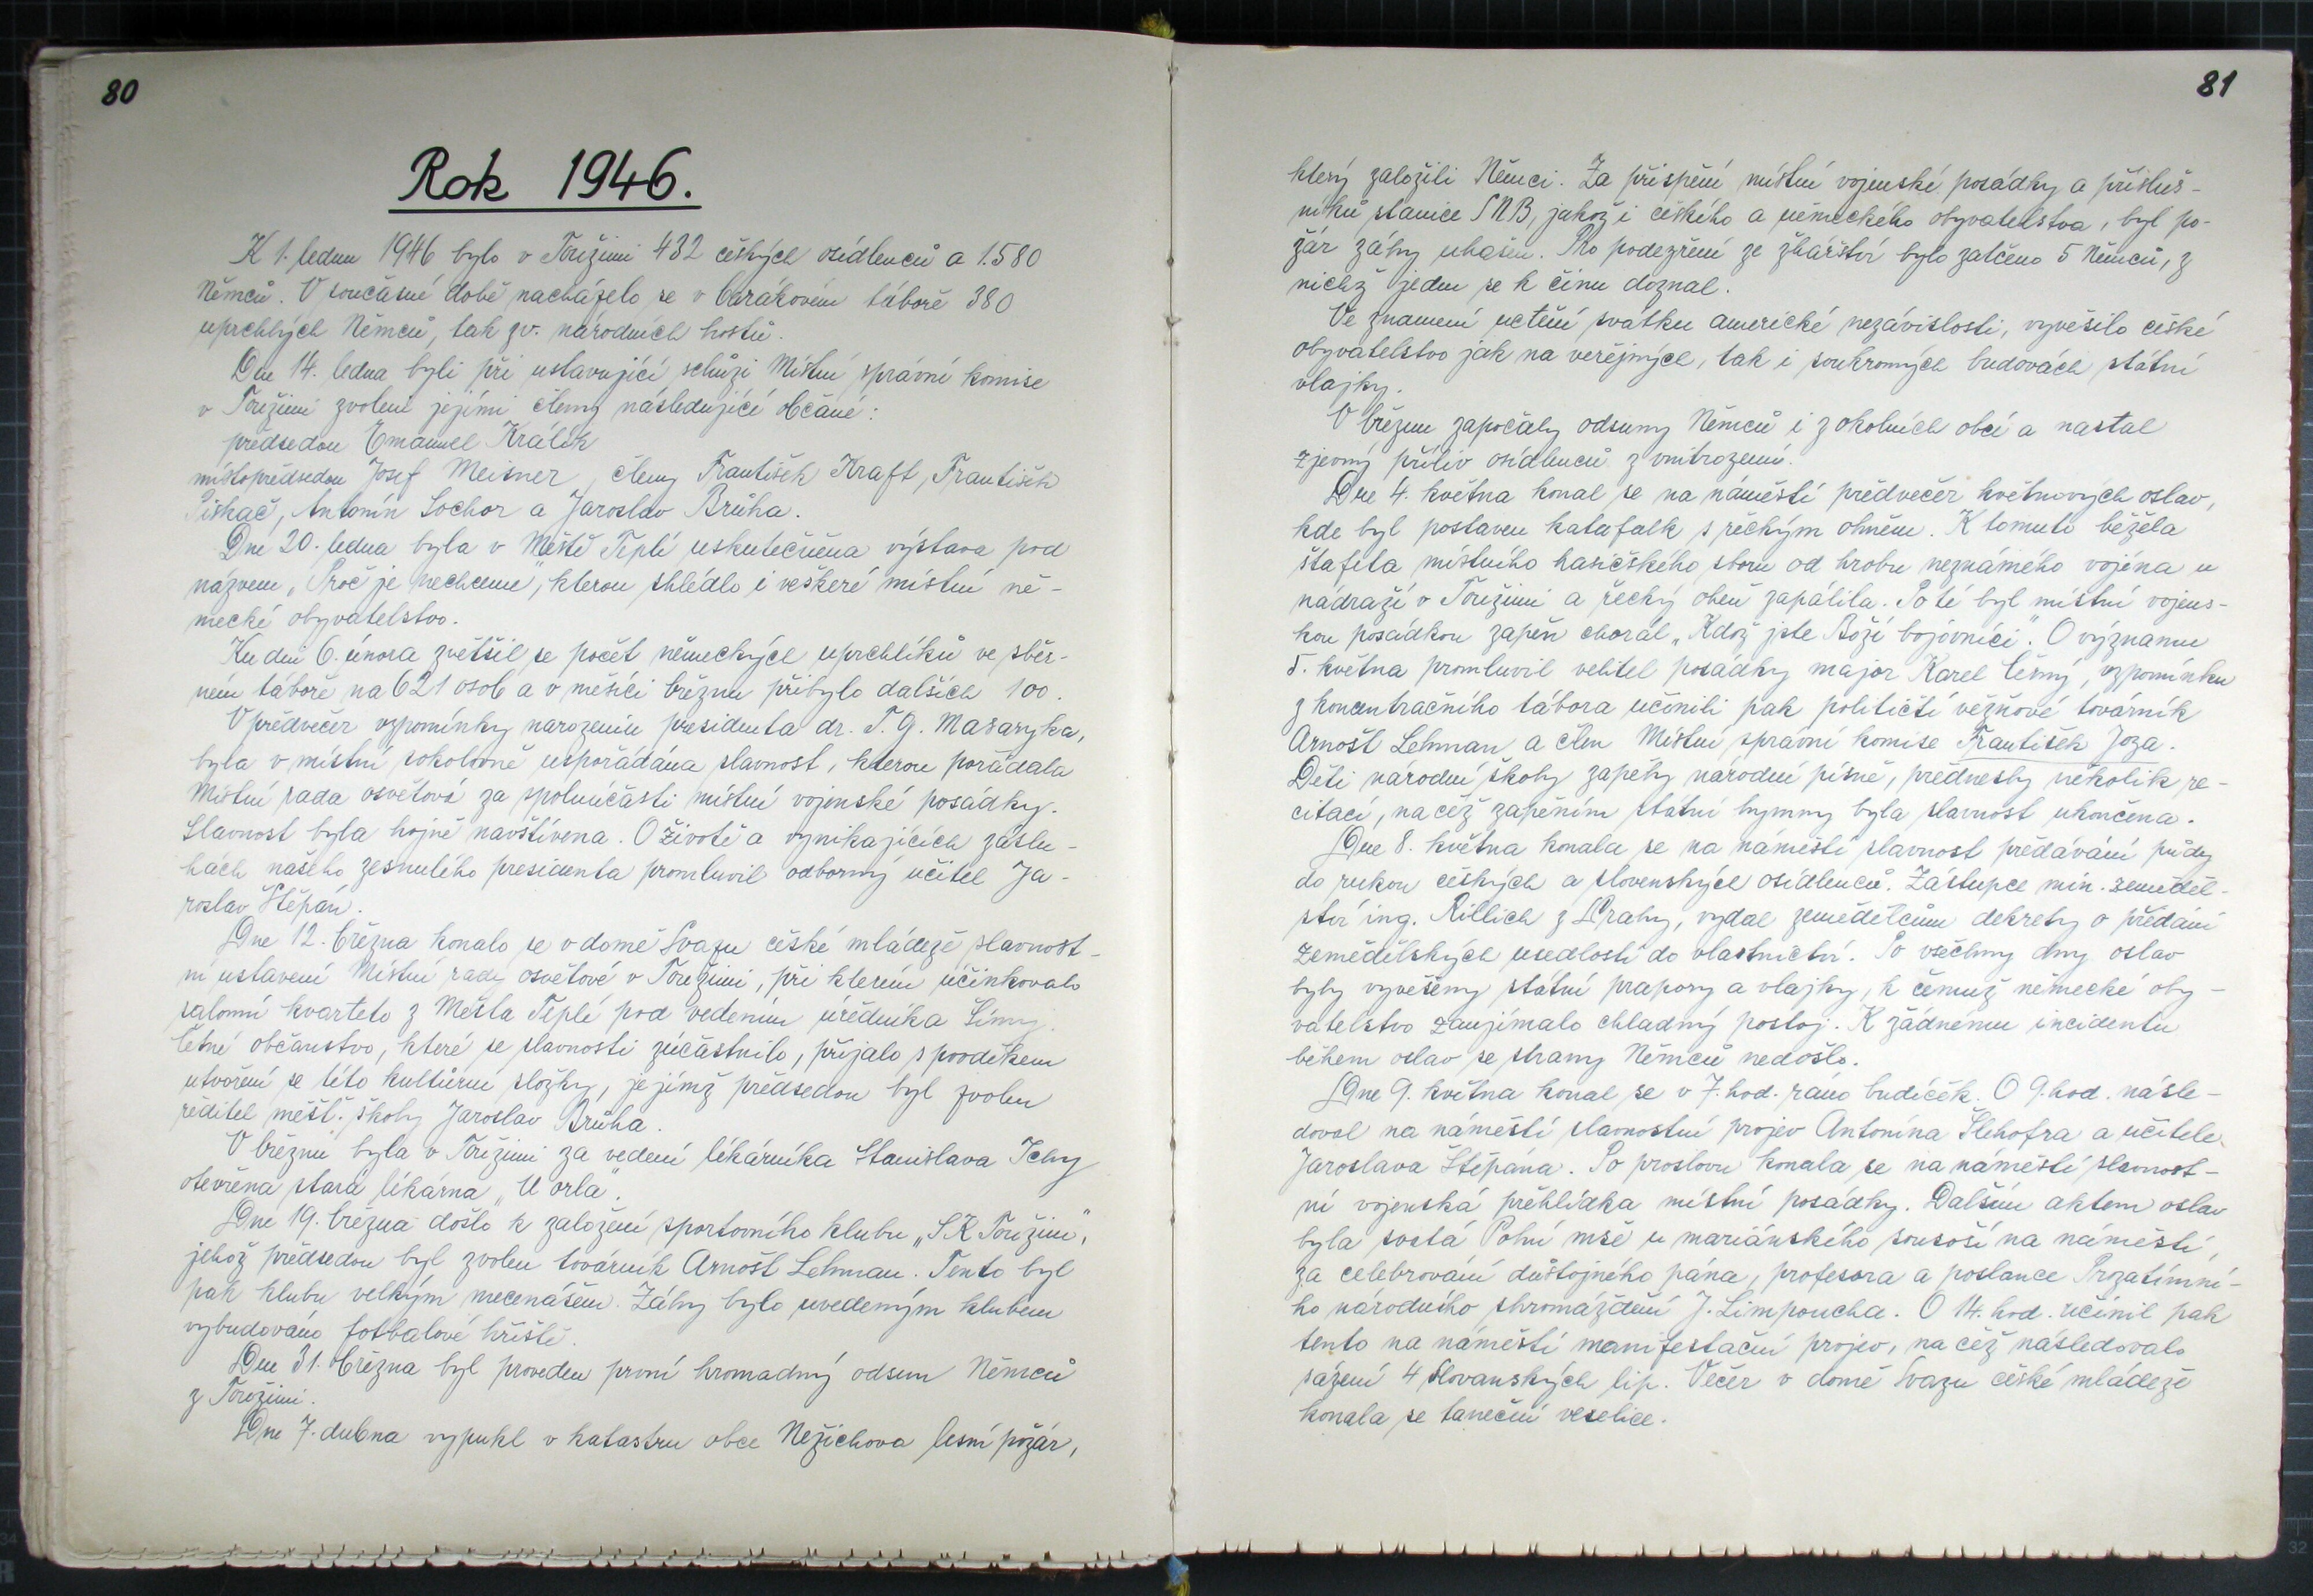 80
Rok 1946.
K 1. lednu 1946 bylo v Toužimi 432 českých osídlenců a 1.580
Němců. V současné době nacházelo se v barákovém táboře 380
uprchlých Němců, tak zv. národních hostů.
Dne 14. ledna byli při ustavující schůzi Místní správní komise
v Toužimi zvoleni jejími členy následující občané:
předsedou Emanuel Králík
místopředsedou Josef Meisner, členy František Kraft, František
Piskač, Antonín Sochor a Jaroslav Brůha.
Dne 20. ledna byla v Městě Teplé uskutečněna výstava pod
názvem „Proč je nechceme", kterou shlédlo i veškeré místní ně-
mecké obyvatelstvo.
Ku dni 6. února zvětšil se počet německých uprchlíků ve sběr-
ném táboře na 621 osob a v měsíci březnu přibylo dalších 100.
V předvečer vzpomínky narozenin presidenta dr. T. G. Masaryka,
byla v místní sokolovně uspořádána slavnost, kterou pořádala
Místní rada osvětová za spoluúčasti místní vojenské posádky.
Slavnost byla hojně navštívena. O životě a vynikajících záslu-
hách našeho zesnulého presidenta promluvil odborný učitel Ja-
roslav Štěpán.
Dne 12. března konalo se v domě Svazu české mládeže slavnost-
ní ustavení Místní rady osvětové v Toužimi, při kterém účinkovalo
salonní kvarteto z Města Teplé pod vedením úředníka Šímy.
Četné občanstvo, které se slavnosti zúčastnilo, přijalo s povděkem
utvoření se této kulturní složky, jejímž předsedou byl zvolen
ředitel měšť. školy Jaroslav Brůha.
V březnu byla v Toužimi za vedení lékárníka Stanislava Ichy
otevřena stará lékárna „U orla".
Dne 19. března došlo k založení sportovního klubu „SK Toužim",
jehož předsedou byl zvolen továrník Arnošt Lehman. Tento byl
pak klubu velkým mecenášem. Záhy bylo uvedeným klubem
vybudováno fotbalové hřiště.
Dne 31. března byl proveden první hromadný odsun Němců
z Toužimi.
Dne 7. dubna vypukl v katastru obce Nežichova lesní požár,
81
který založili Němci. Za přispění místní vojenské posádky a přísluš-
níků stanice SNB, jakož i českého a německého obyvatelstva, byl po-
žár záhy uhašen. Pro podezření ze žhářství bylo zatčeno 5 Němců, z
nichž jeden se k činu doznal.
Ve znamení uctění svátku americké nezávislosti, vyvěsilo české
obyvatelstvo jak na veřejných, tak i soukromých budovách státní
vlajky.
V březnu započaly odsuny Němců i z okolních obcí a nastal
zjevný příliv osídlenců z vnitrozemí.
Dne 4. května konal se na náměstí předvečer květnových oslav,
kde byl postaven katafalk s řeckým ohněm. K tomuto běžela
štafeta místního hasičského sboru od hrobu neznámého vojína u
nádraží v Toužimi a řecký oheň zapálila. Poté byl místní vojens-
kou posádkou zapěn chorál „Kdož jste Boží bojovníci". O významu
5. května promluvil velitel posádky major Karel Černý, vzpomínku
z koncentračního tábora učinili pak političtí vězňové továrník
Arnošt Lehman a člen Místní správní komise František Joza.
Děti národní školy zapěly národní písně, přednesly několik re-
citací, načež zapěním státní hymny byla slavnost ukončena.
Dne 8. května konala se na náměstí slavnost předávání půdy
do rukou českých a slovenských osídlenců. Zástupce min. zeměděl-
ství ing. Rillich z Prahy, vydal zemědělcům dekrety o předání
zemědělských usedlostí do vlastnictví. Po všechny dny oslav
byly vyvěšeny státní prapory a vlajky, k čemuž německé oby-
vatelstvo zaujímalo chladný postoj. K žádnému incidentu
během oslav se strany Němců nedošlo.
Dne 9. května konal se v 7. hod. ráno budíček. O 9. hod. násle-
doval na náměstí slavnostní projev Antonína Šlehofra a učitele
Jaroslava Štěpána. Po proslovu konala se na náměstí slavnost-
ní vojenská přehlídka místní posádky. Dalším aktem oslav
byla svatá Polní mše u mariánského sousoší na náměstí,
za celebrování důstojného pána, profesora a poslance Prozatímní-
ho národního shromáždění J. Limpoucha. O 14. hod. učinil pak
tento na náměstí manifestační projev, načež následovalo
sázení 4 Slovanských lip. Večer v domě Svazu české mládeže
konala se taneční veselice.